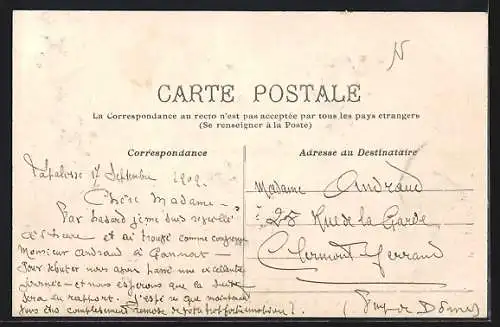 N
CARTE POSTALE
La Correspondance au recto n'est pas acceptée par tous les pays étrangers
(Se renseigner à la Poste)
Correspondance
Adresse au Destinataire
Lapalisse 17 Septembre 1909
Chère Madame -
Par hasard je me suis réveillé
à l'heure et ai trouvé comme
Monsieur Andraud à Gannat -
Pour débuter nous avons passé une excellente
journée - et nous espérons que la suite
sera en rapport. J'espère que maintenant
vous êtes complètement remise de votre ?
Madame Andraud
25 Rue de la Garde
Clermont Ferrand
(Puy de Dôme)